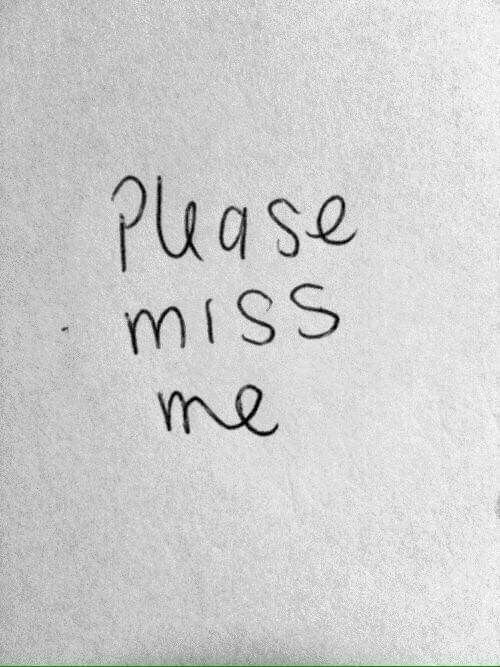 Please
miss
me